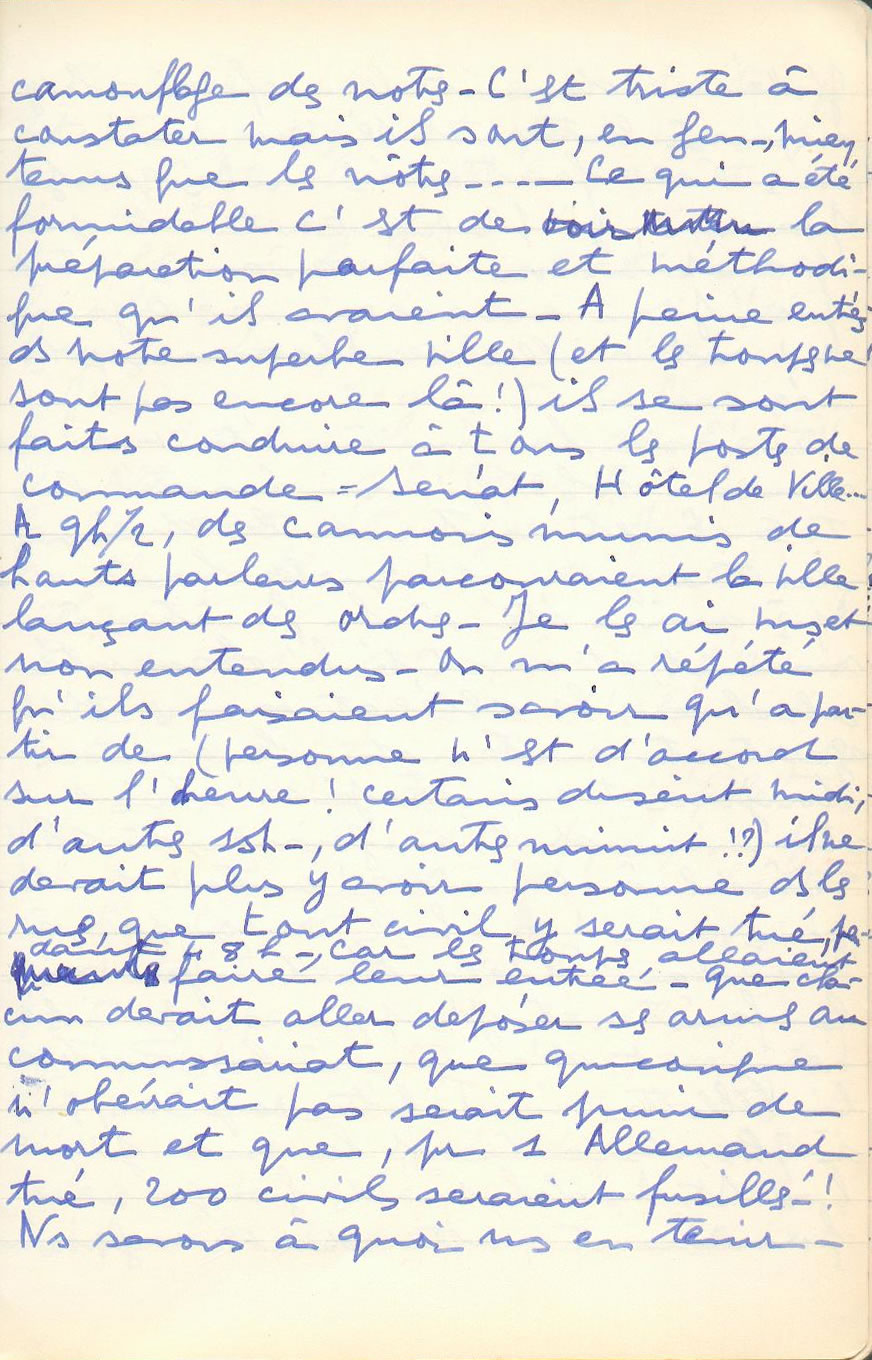 camouflage des notres - C'est triste à
constater mais ils sont, en gen -, mieux
tenus que les nôtres ---- Ce qui a été
formidable c'est de voir la
préparation parfaite et méthodi-
que qu'ils avaient - A peine entrés
ds notre superbe ville (et les troupes ne
sont pas encore là !) ils se sont
faits conduire à tous les postes de
commande = Senat, Hôtel de Ville...
A 9h1/2, des camions munis de
hauts parleurs parcouraient la ville
lançant des ordres - Je les ai vus et
non entendus - On m'a répété
qu'ils faisaient savoir qu'a par-
tir de (personne n'est d'accord
sur l'heure ! certains disent midi,
d'autres 15h -, d'autres minuit !!?) il ne
devait plus y avoir personne ds les
rues, que tout civil y serait tué, pe-
dant 48 h -, car les troupes allaient
faire leur entrée - que cha-
cun devait aller deposer ses armes au
commissariat, que quiconque
n'obéirait pas serait puni de
mort et que, pr 1 Allemand
tué, 200 civils seraient fusillés - !
Ns savons à quoi ns en tenir -